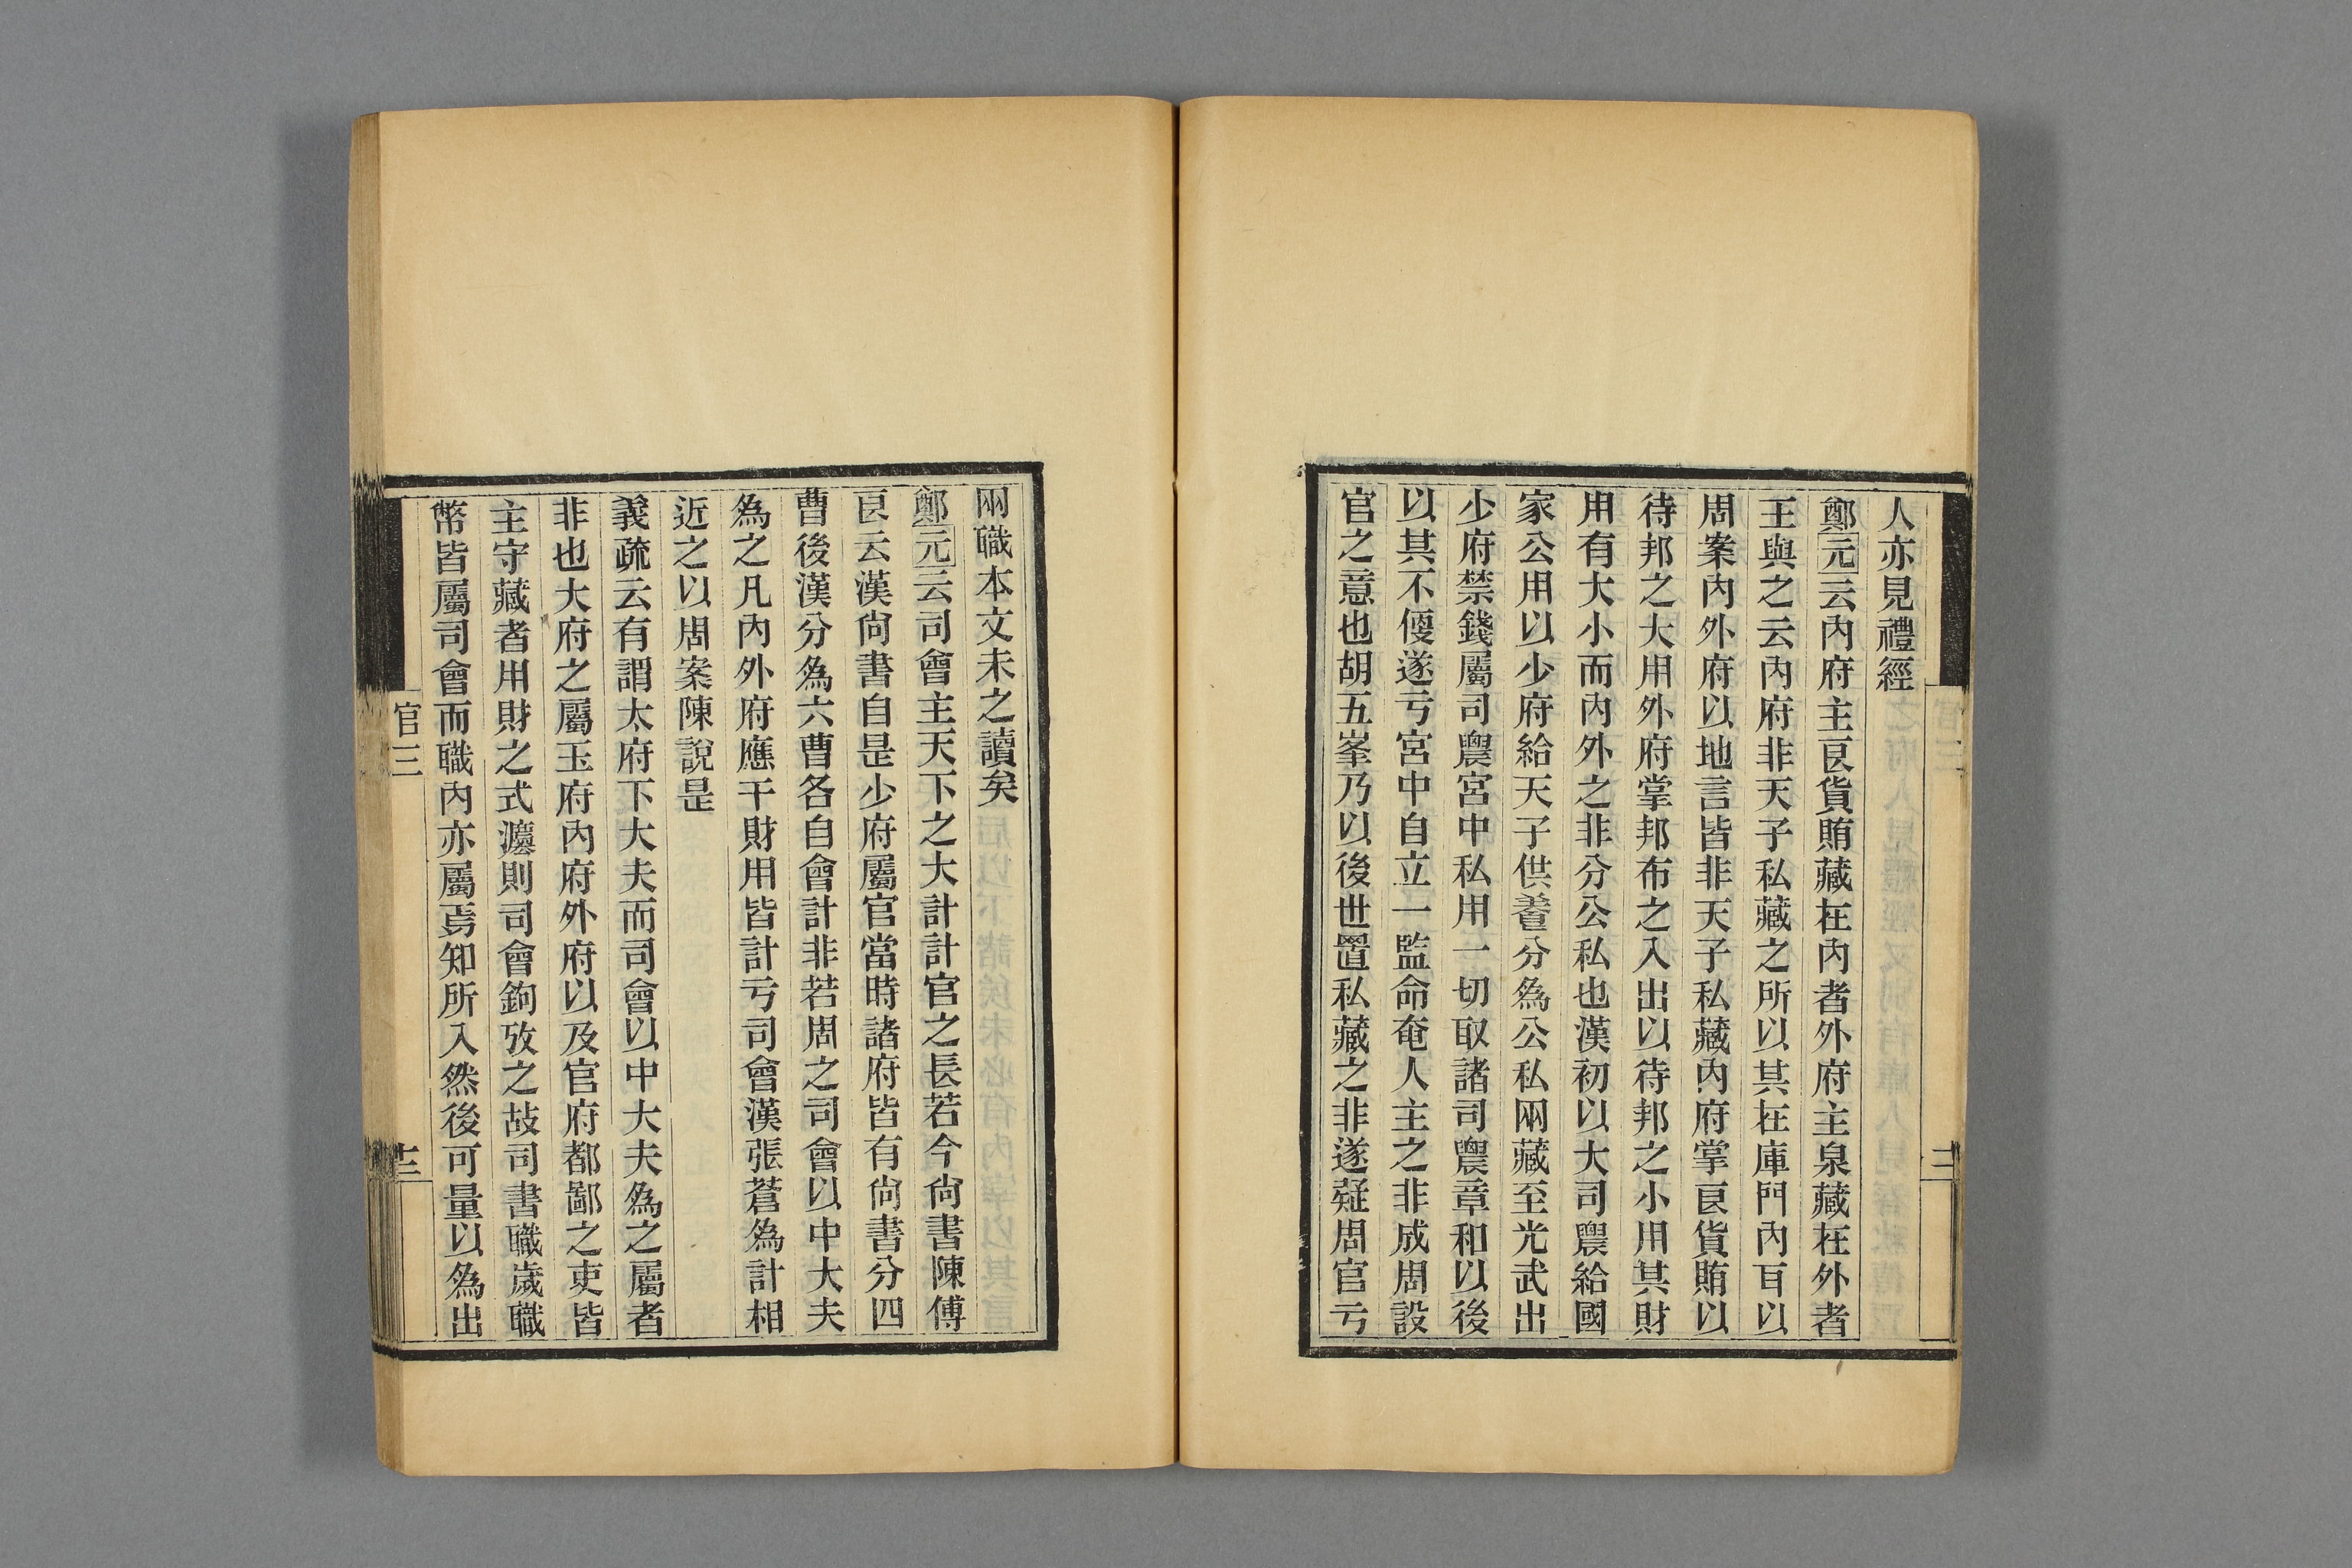 人亦見禮經
鄭元云內府主良貨賄藏在內者外府主泉藏在外者
王與之云內府非天子私藏之所以其在庫門內耳以
周案內外府以地言皆非天子私藏內府掌良貨賄以
待邦之大用外府掌邦布之入出以待邦之小用其財
用有大小而內外之非分公私也漢初以大司農給國
家公用以少府給天子供養分為公私兩藏至光武出
少府禁錢屬司農宮中私用一切取諸司農章和以後
以其不便遂亏宮中自立一監命奄人主之非成周設
官之意也胡五峯乃以後世置私藏之非遂疑周官亏
兩職本文未之讀矣
鄭元云司會主天下之大計計官之長若今尙書陳傅
良云漢尙書自是少府屬官當時諸府皆有尙書分四
曹後漢分為六曹各自會計非若周之司會以中大夫
為之凡內外府應干財用皆計亏司會漢張蒼為計相
近之以周案陳說是
義疏云有謂太府下大夫而司會以中大夫為之屬者
非也大府之屬玉府內府外府以及官府都鄙之吏皆
主守藏者用財之式灋則司會鉤攷之故司書職歲職
幣皆屬司會而職內亦屬焉知所入然後可量以為出
官三
三